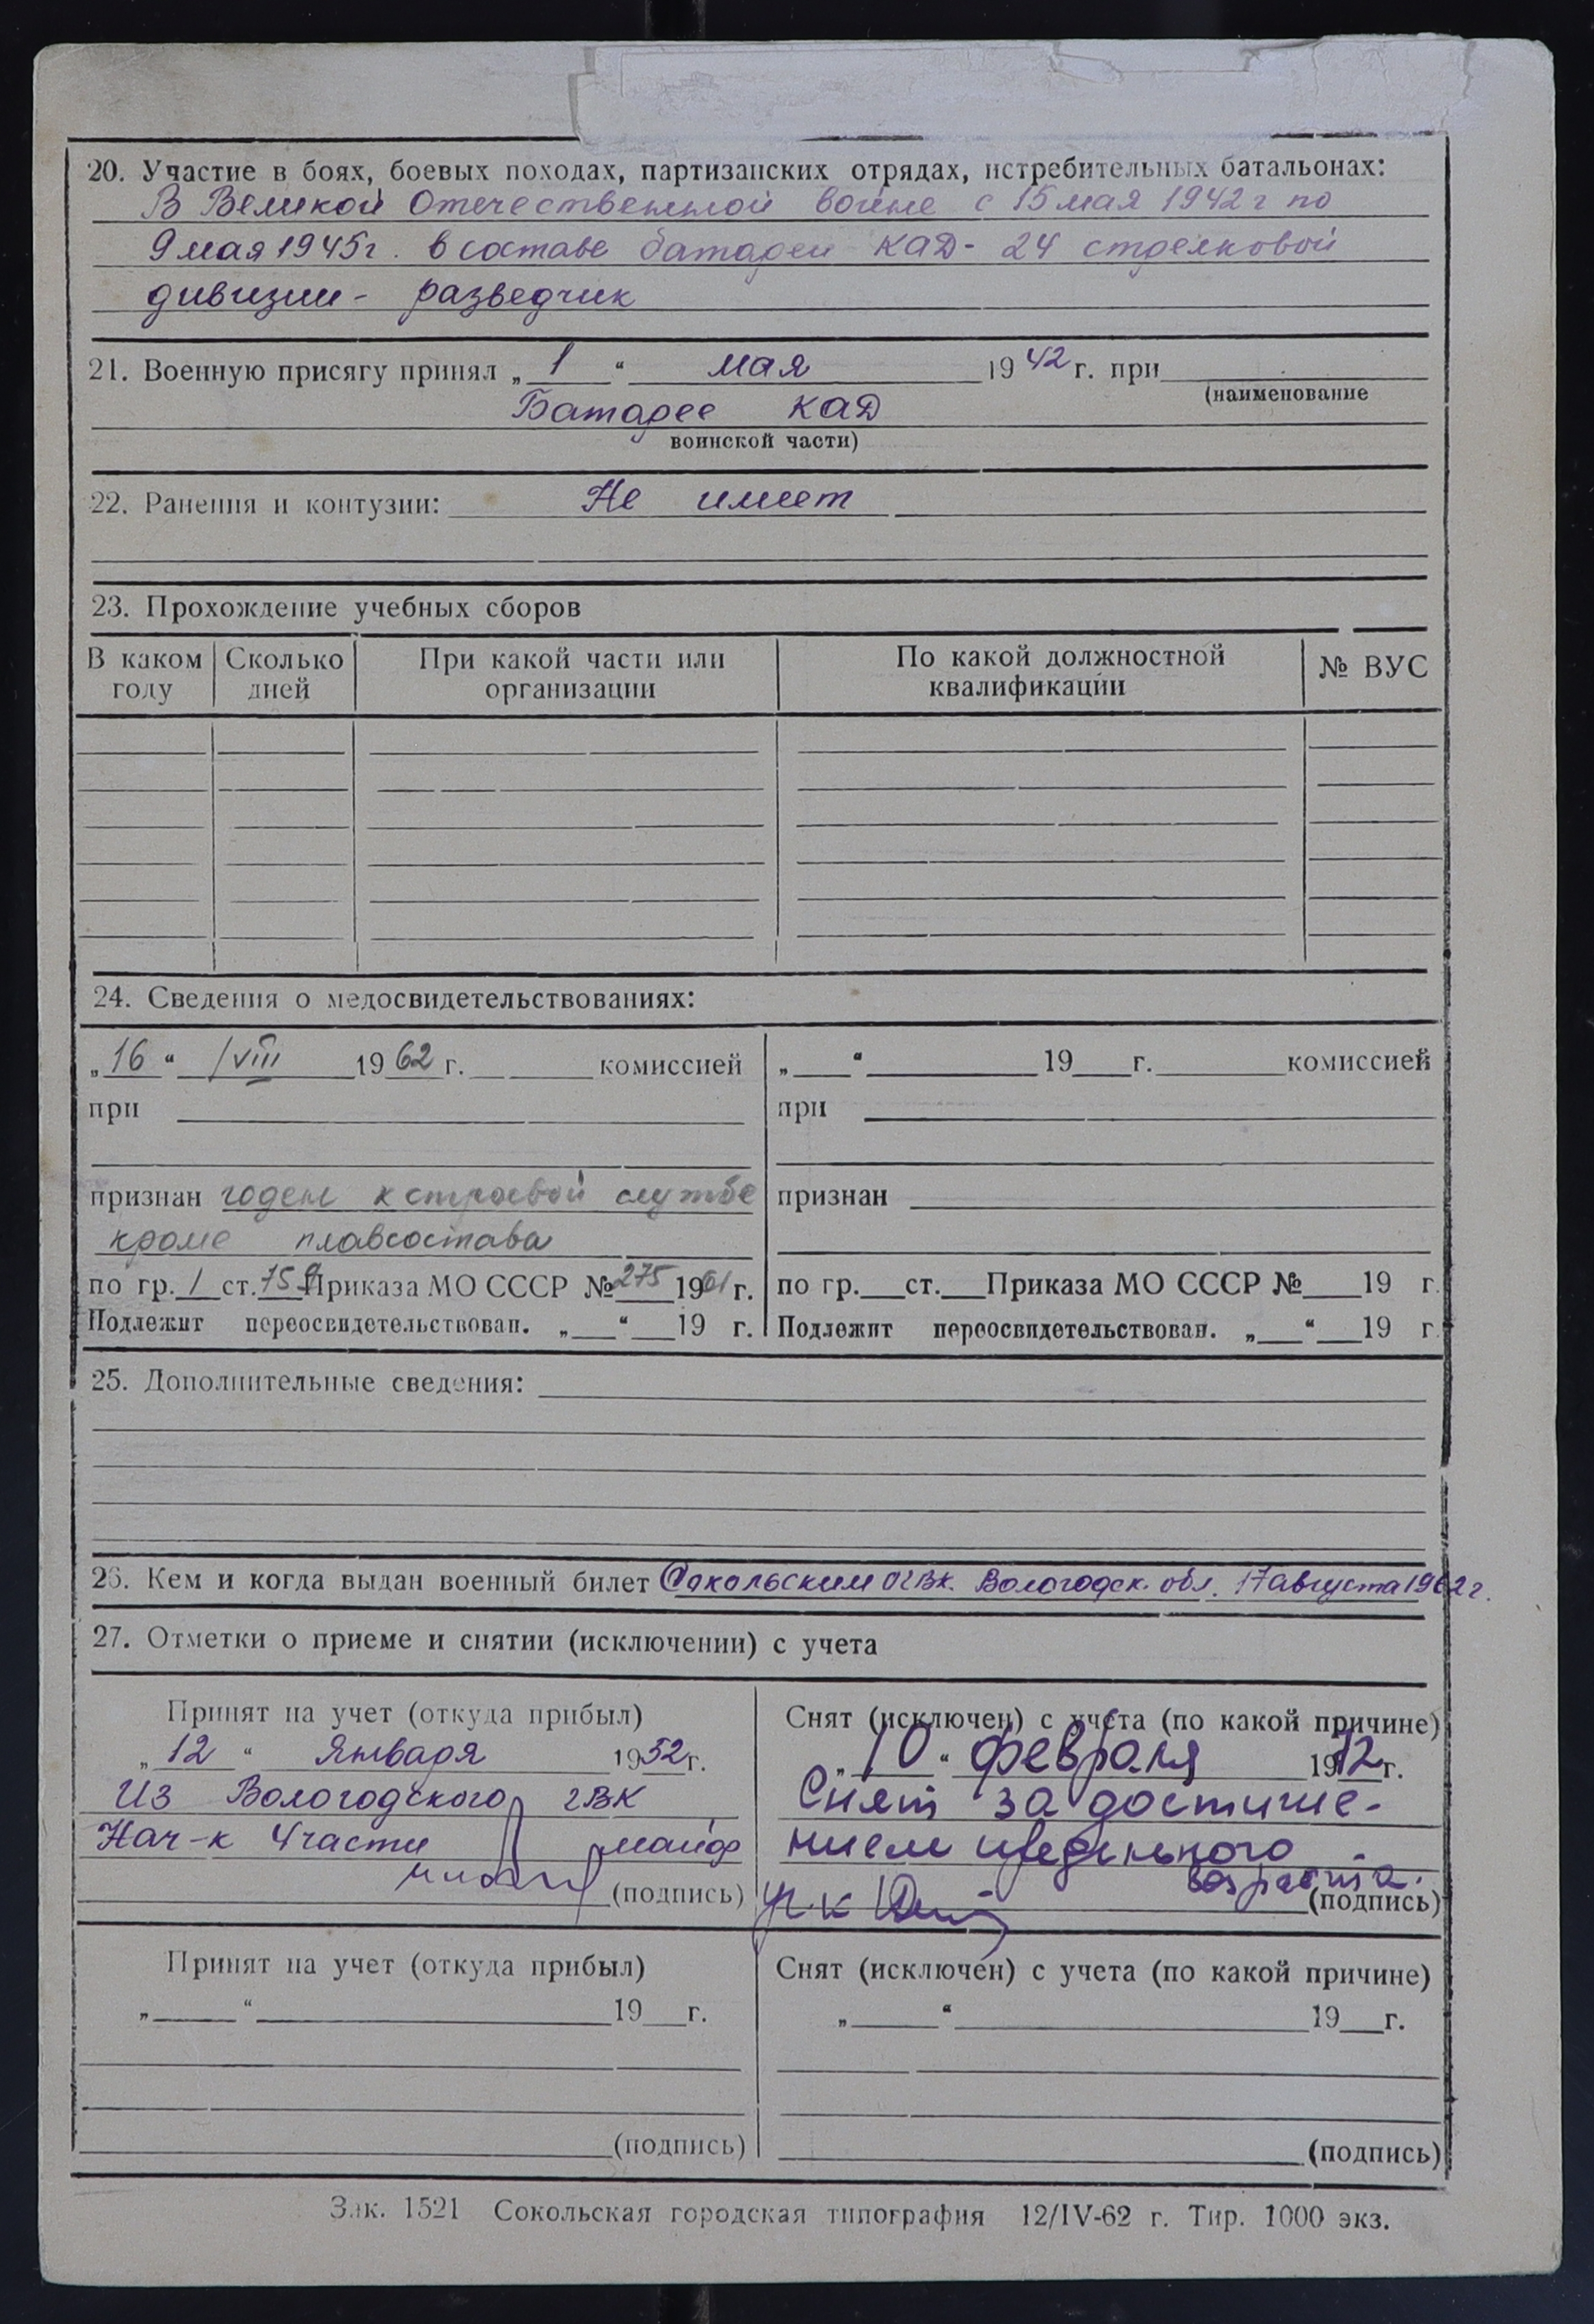 20. Участие в боях, боевых походах, партизанских отрядах, истребительных батальонах:
В Великой Отечественной войне с 15 мая 1942 г по
9 мая 1945 г. в составе батареи КАД - 24 стрелковой
дивизии - разведчик
21. Военную присягу принял „ 1 “ мая 1942 г. при
(наименование
Батарее КАД
воинской части)
22. Ранения и контузии: Не имеет
23. Прохождение учебных сборов
В каком Сколько При какой части или По какой должностной № ВУС
году дней организации квалификации
24. Сведения о медосвидетельствованиях:
„16“ /VIII 1962 г. комиссией „ “ 19 г. комиссией
при при
признан годен к строевой службе признан
кроме плавсостава
по гр. 1 ст. 75 Приказа МО СССР № 275 1961 г. по гр. ст. Приказа МО СССР № 19 г.
Подлежит переосвидетельствован. „ “ 19 г. Подлежит переосвидетельствован. „ “ 19 г.
25. Дополнительные сведения:
26. Кем и когда выдан военный билет Сокольским ОГВК. Вологодск. обл. 17 августа 1962 г.
27. Отметки о приеме и снятии (исключении) с учета
Принят на учет (откуда прибыл) Снят (исключен) с учета (по какой причине)
„12“ Января 1952 г. „10“ февраля 1972 г.
Из Вологодского ГВК Снят за достиже-
Нач-к 4 части майор нием предельного
(подпись) возраста.
(подпись)
Принят на учет (откуда прибыл) Снят (исключен) с учета (по какой причине)
„ “ 19 г. „ “ 19 г.
(подпись) (подпись)
Зак. 1521 Сокольская городская типография 12/IV-62 г. Тир. 1000 экз.